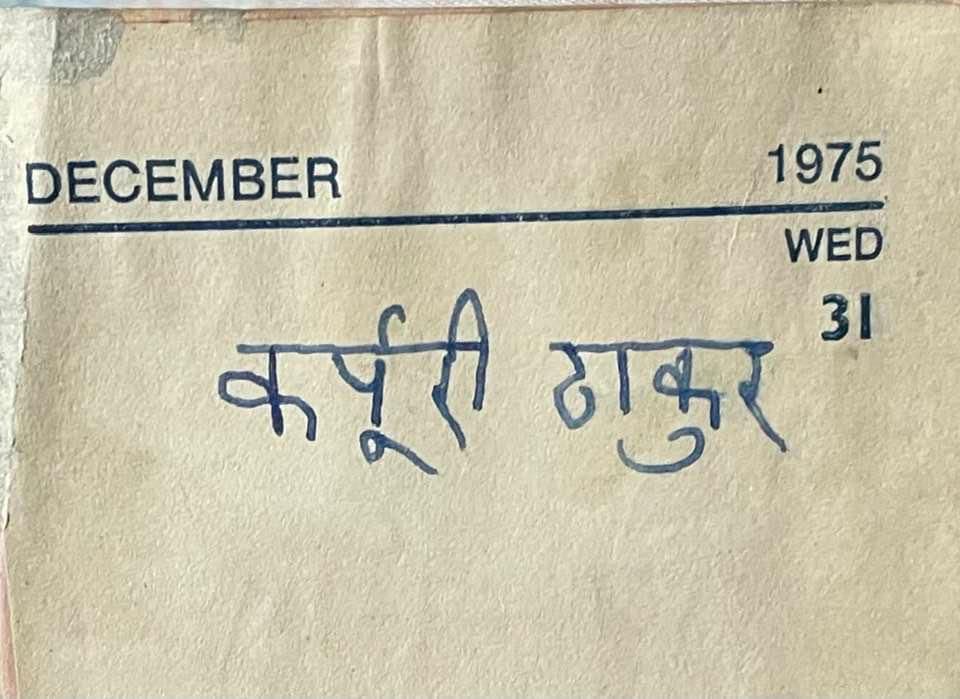 DECEMBER 1975
WED
31
कर्पूरी ठाकुर